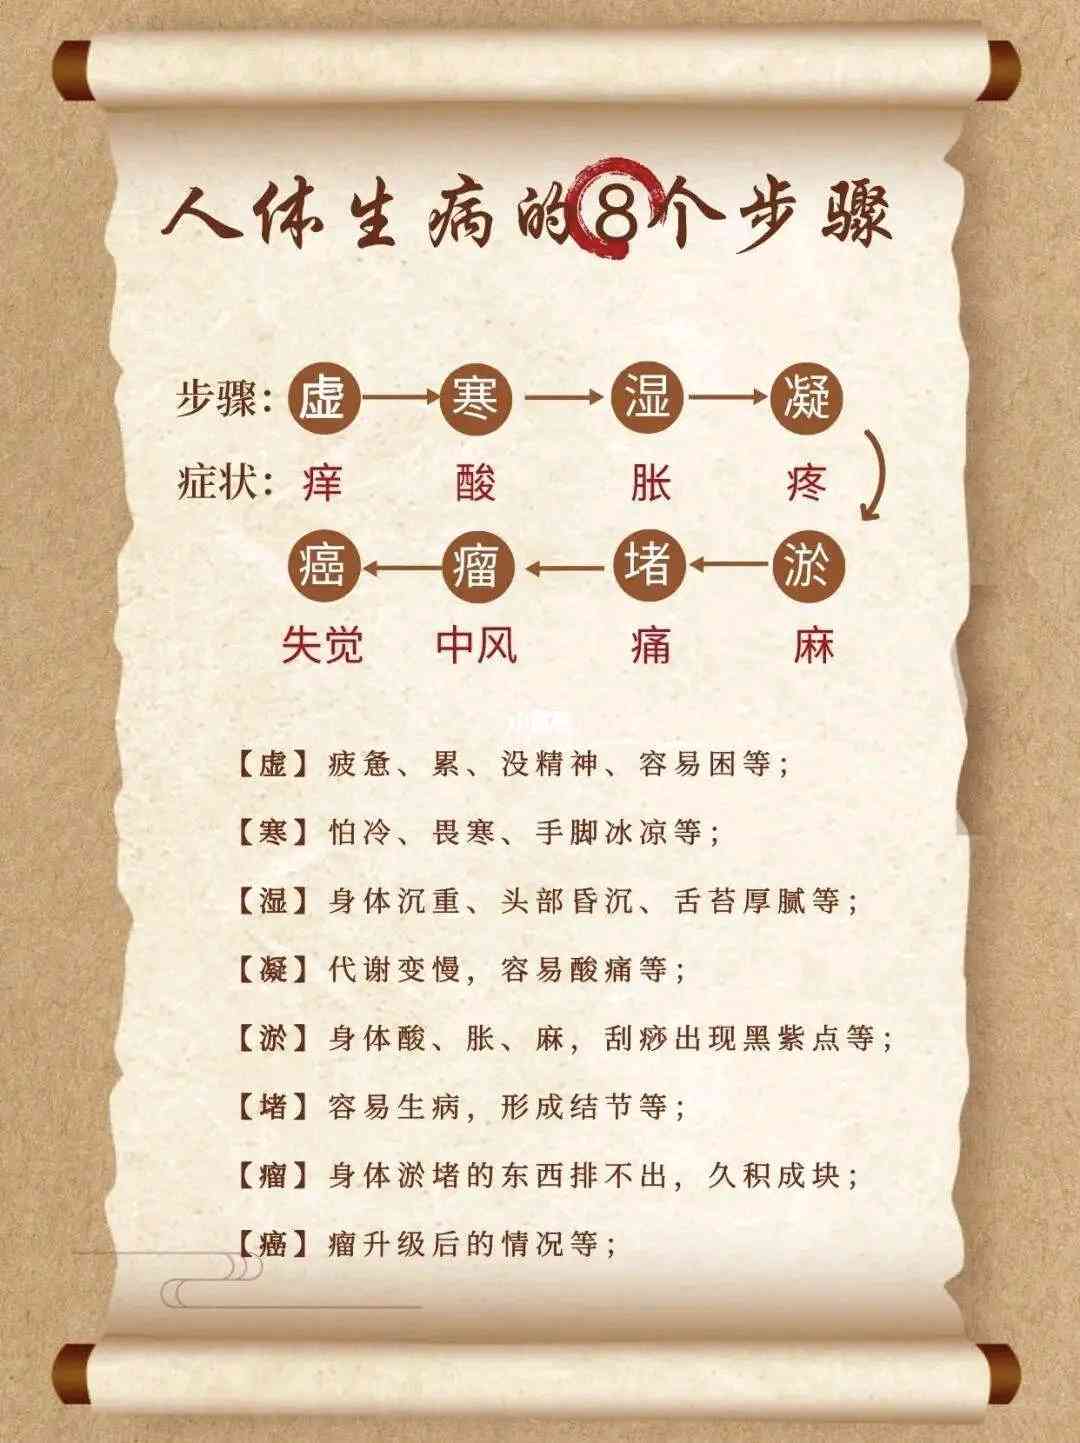 人体生病的8个步骤
步骤：虚 寒 湿 凝
症状：痒 酸 胀 疼
癌 瘤 堵 淤
失觉 中风 痛 麻
【虚】疲惫、累、没精神、容易困等；
【寒】怕冷、畏寒、手脚冰凉等；
【湿】身体沉重、头部昏沉、舌苔厚腻等；
【凝】代谢变慢，容易酸痛等；
【淤】身体酸、胀、麻，刮痧出现黑紫点等；
【堵】容易生病，形成结节等；
【瘤】身体淤堵的东西排不出，久积成块；
【癌】瘤升级后的情况等；